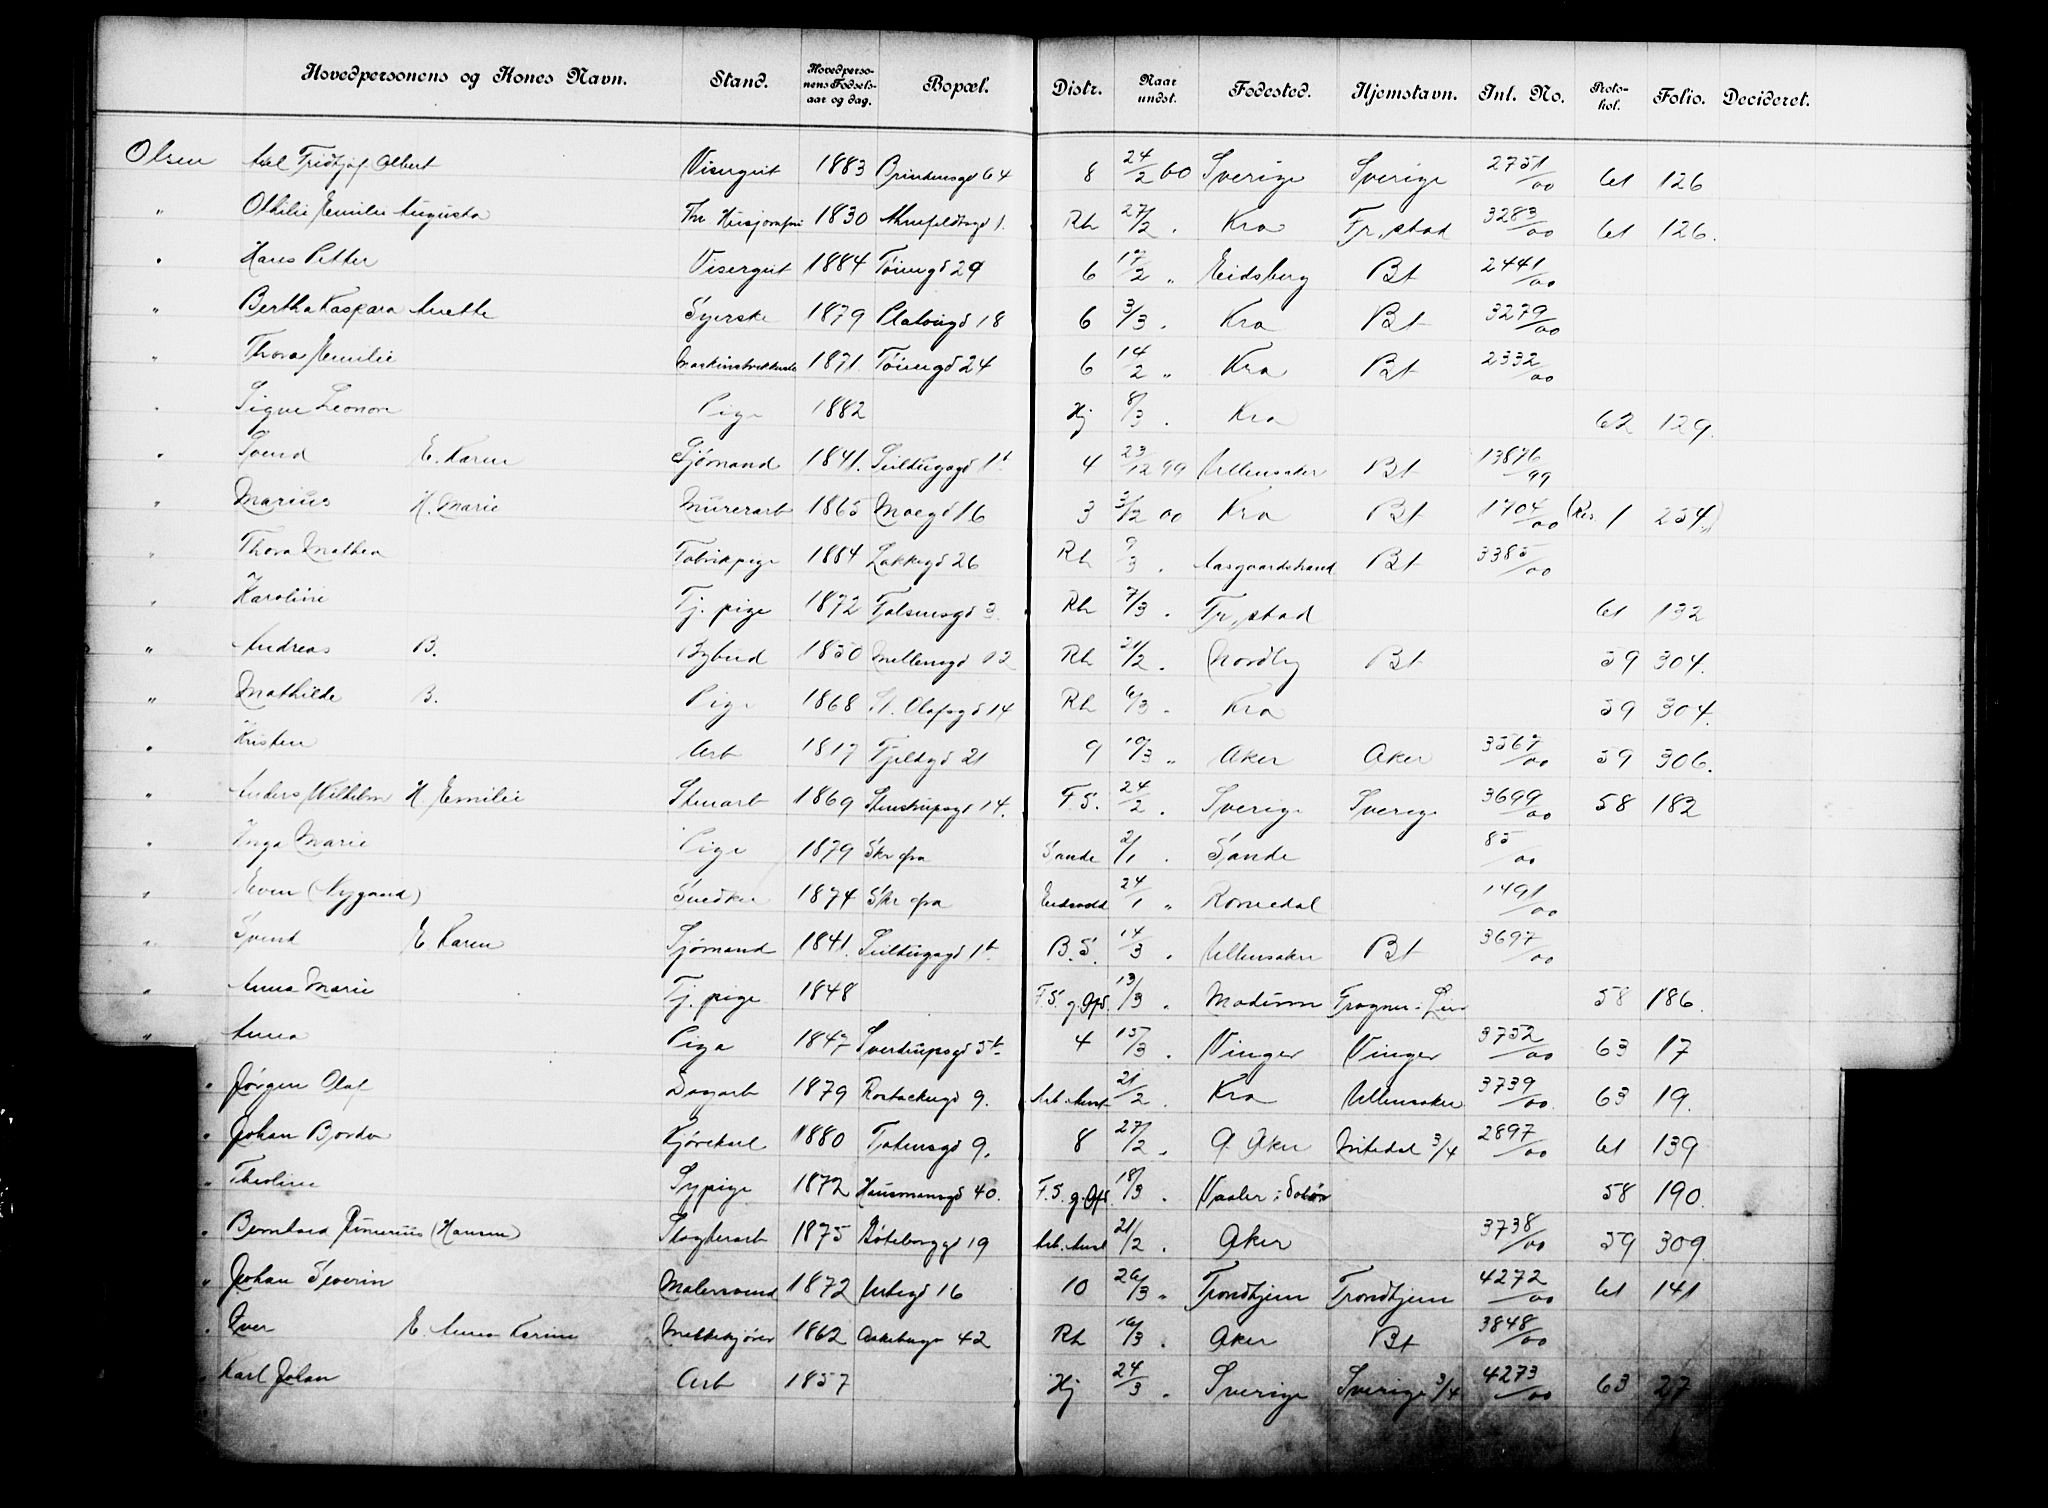 Hovedpersonens og Kones Navn. Stand. Hovedpersonens Fødselsaar og dag. Bopæl. Distr. Naar undst. Fødested. Hjemstavn. Inl. No. Protokol. Folio. Decideret.
Olsen Axel Fridtjof Albert Visergut 1883 64 8 24/2 00 Sverige Sverige 2751/00 61 126
" Othilie Emilie Augusta 1830 1. Rh 27/2 . Kra Fr.stad 3283/00 61 126.
" Hans Petter Visergut 1884 Tøiengd 29 6 17/2 " Eidsberg Bt 2441/00
" Bertha Kaspara Anette Syerske 1879 Platougd 18 6 3/3 . Kra Bt 3279/00
" Thora Emilie 1871 Tøiengd 24 6 14/2 " Kra Bt 2332/00
" Signe Leonore Pige 1882 Hj 8/3 . Kra 62 129.
" Svend E. Karen Sjømand 1841. 1b 4 23/12 99 Ullensaker Bt 13876/99
" Marius H. Marie Murerarb 1865 Moegd 16 3 3/2 00 Kra Bt 1704/00 (Res. 1 254)
" Thora Mathea Fabrikpige 1884 Lakkegd 26 Rh 9/3 . Aasgaardstrand Bt 3385/00
" Karoline Tj. pige 1872 3. Rh 7/3 . Fr.stad 61 132
" Andreas B. Bybud 1850 Møllergd 12 Rh 21/2 . Nordby Bt 59 304.
" Mathilde B. Pige 1868 St. Olafsgd 14 Rh 6/3 . Kra 59 304.
" Kristen Arb 1817 Fjeldgd 21 9 10/3 " Aker Aker 3567/00 59 306.
" Anders Wilhelm H. Emilie Stenarb 1869 Stenstrupsgd 14. F.S. 24/2 . Sverige Sverige 3699/00 58 182
" Inga Marie Pige 1879 Skr fra Sande 2/1 . Sande 85/00
" Even (Nygaard) Snedker 1874 Skr fra Eidsvold 24/1 " Romedal 1491/00
" Svend E Karen Sjømand 1841. 1b B.S. 14/3 . Ullensaker Bt 3697/00
" Anna Marie Tj. pige 1848 F.S. g. Gfs. 13/3 " Modum Fragner i Lier 58 186.
" Anna Pige 1847 Sverdrupsgd 5b 4 15/3 . Vinger Vinger 3752/00 63 17
" Jørgen Olaf Dagarb 1879 Rostockergd 9. Arb. Anst 21/2 . Kra Ullensaker 3739/00 63 19.
" Johan Kjørekarl 1880 Totensgd 9. 8 27/2 . Ø. Aker Nitedal 3/4 2897/00 61 139
" Theoline Sypige 1872 Hausmannsgd 40. F.S. g. Gfs. 18/3 . Vaaler i Solør 58 190.
" Bernhard (Hansen) Slagterarb 1875 Gøteborggd 19 Arb. Anst 21/2 . Aker 3738/00 59 309.
" Johan Severin Malersvend 1872 Urtegd 16 10 26/3 " Trondhjem Trondhjem 4272/00 61 141
" Iver E. Anna Karine Melkekjører 1862 42 Rh 16/3 . Aker Bt 3848/00
" Karl Johan Arb 1857 Hj 24/3 . Sverige Sverige 3/4 4273/00 63 27